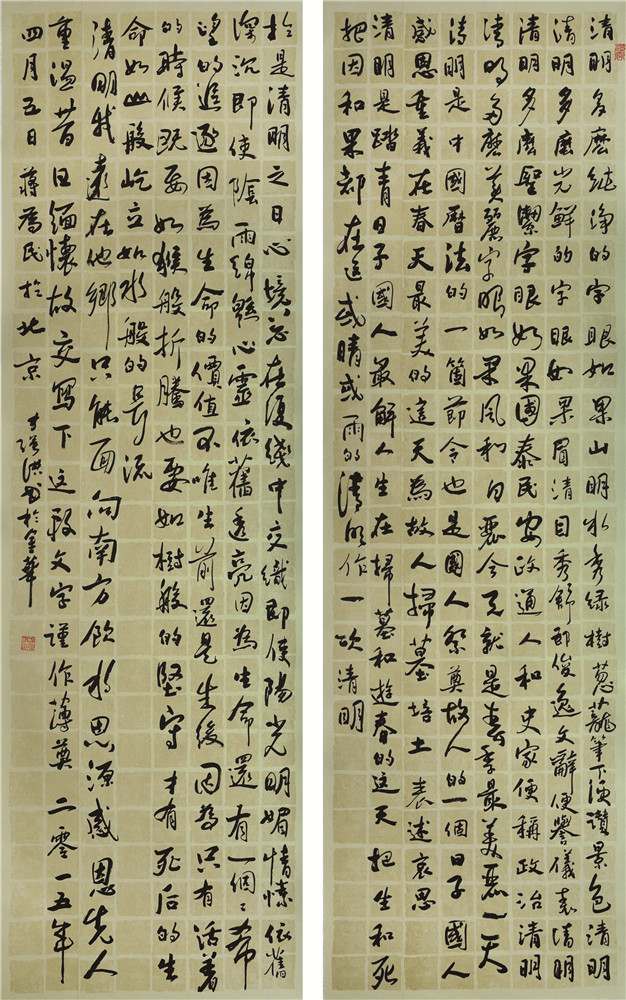 清明多麼純淨的字眼如果山明水秀綠樹蔥蘢筆下便讚景色清明
清明多麼光鮮的字眼如果眉清目秀舒郎俊逸文辭便譽儀表清明
清明多麼聖潔字眼如果國泰民安政通人和史家便稱政治清明
清明多麼美麗字眼如果風和日麗今天就是春季最美麗一天
清明是中國曆法的一箇節令也是國人祭奠故人的一個日子國人
感恩重義在春天最美的這天為故人掃墓培土表述哀思
清明是踏青日子國人最解人生在掃墓和遊春的這天把生和死
把因和果都在這或晴或雨的清明作一次清明
於是清明之日心境總在復綫中交織即使陽光明媚情愫依舊
深沉即使陰雨綿綿心靈依舊透亮因為生命還有一個個希
望的追逐因為生命的價值不唯生前還是生後因為只有活着
的時候既要如猴般折騰也要如樹般的堅守才有死后的生
命如山般屹立如水般的長流
清明我遠在他鄉只能面向南方飲水思源感恩先人
重溫昔日緬懷故交寫下這段文字謹作薄奠二零一五年
四月五日蔣為民於北京 書於金華